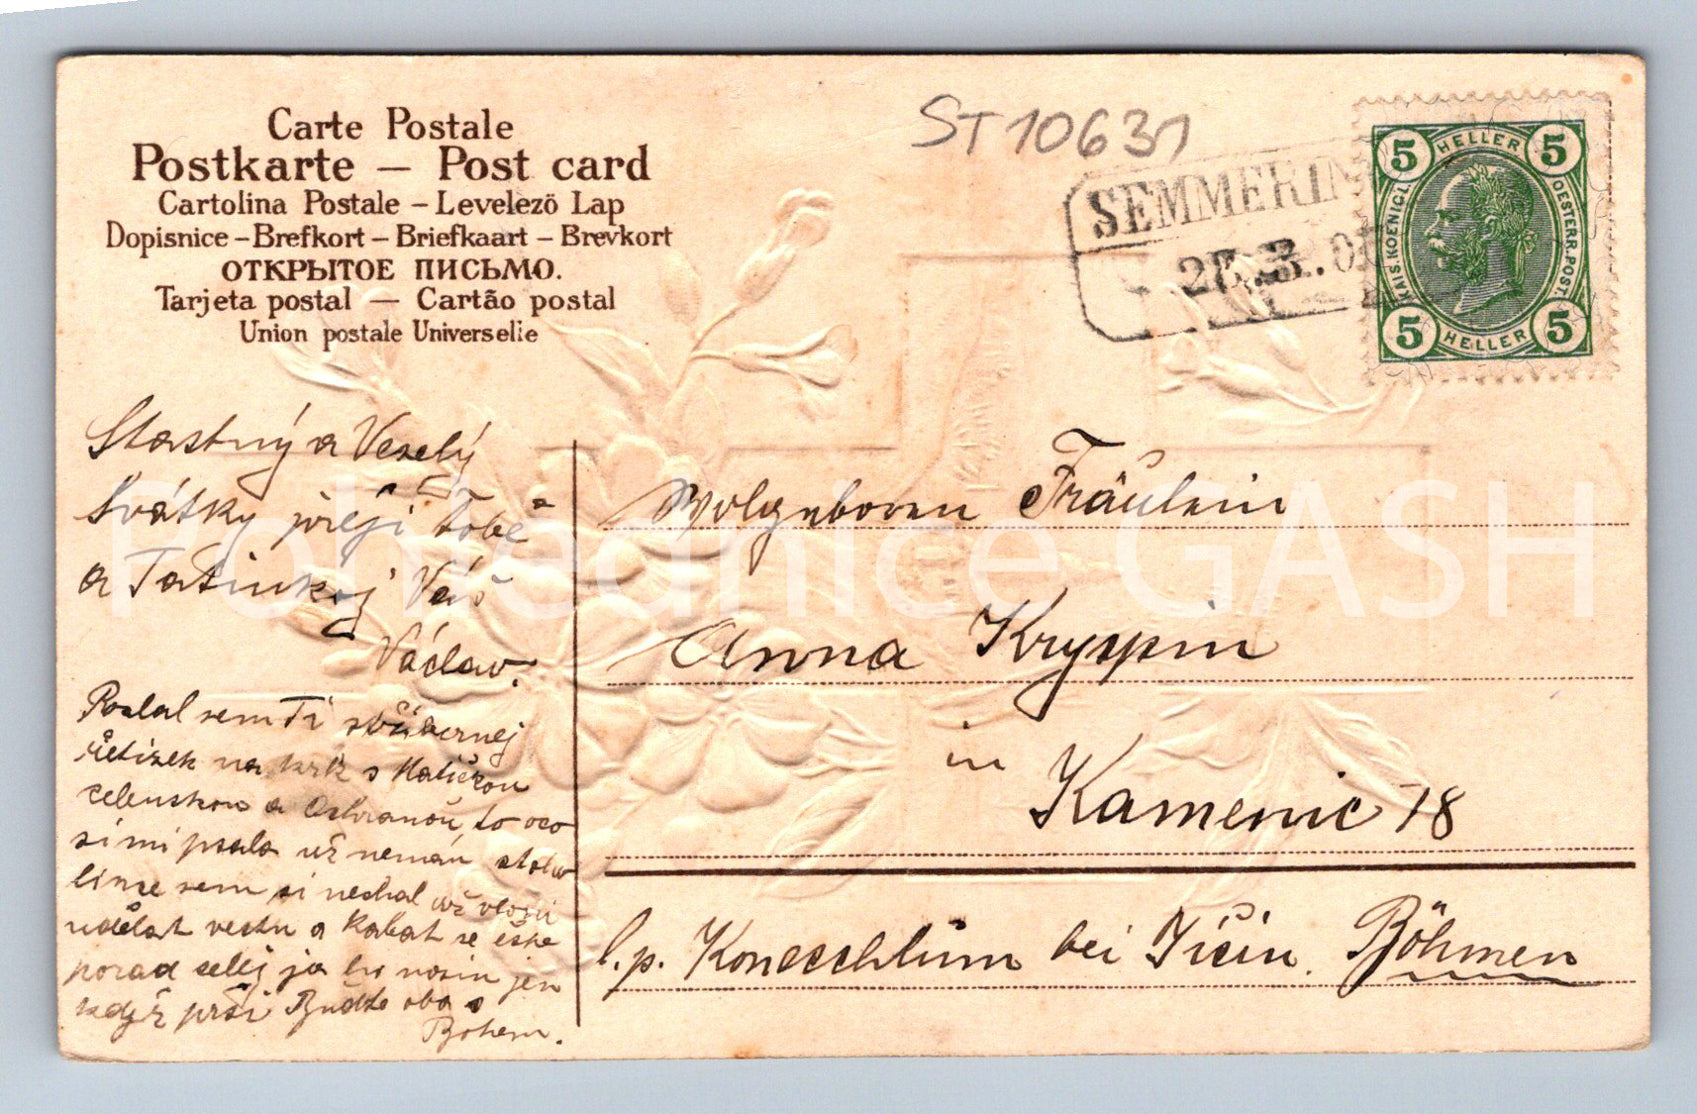 Carte Postale
Postkarte — Post card
Cartolina Postale – Levelezö Lap
Dopisnice – Brefkort – Briefkaart – Brevkort
ОТКРЫТОЕ ПИСЬМО.
Tarjeta postal — Cartão postal
Union postale Universelle
ST10631
SEMMERIN
5 HELLER 5
KAIS. KOENIGL. OESTERR. POST.
5 HELLER 5
Stastný a Veselý
Svátky přeji tobě
a Tatinkoj Váš
Václav.
Poslal sem Ti střibernej
řetizek na krk s Katičkou
a Ochranou, to oco
si mi psala už nemám
sem si nechal
udělat vestu a Kabat se eště
porad celej ja ho nosin jen
když prši Buďte oba s
Bohem.
Wolgeboren Fräulein
Anna Kryspin
in
Kamenic 78
l.p. Konecchlum bei Jičin. Böhmen
Pohlednice GASH